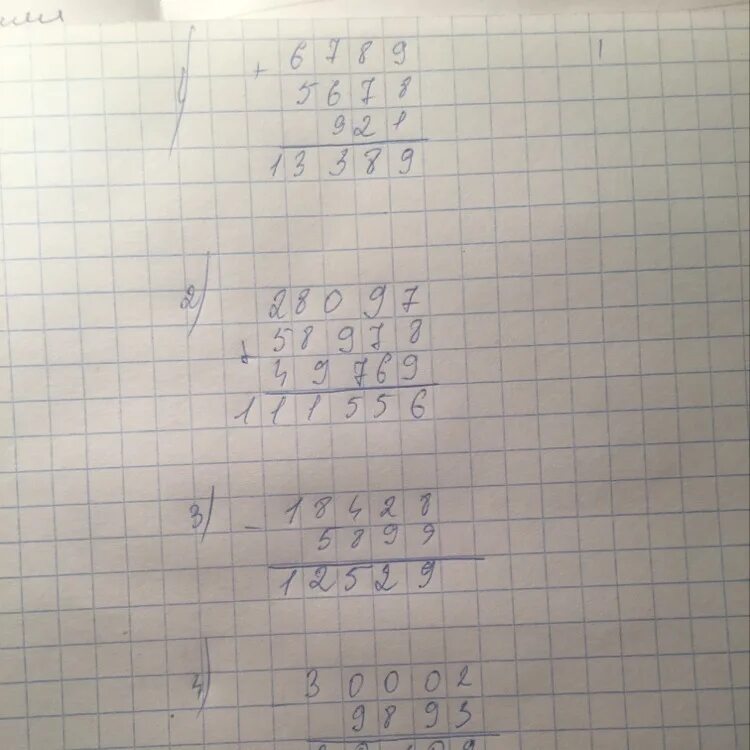 1)
+ 6789
5678
921
13389
2)
28097
+ 58978
49769
111556
3)
- 18428
5899
12529
4)
30002
9893